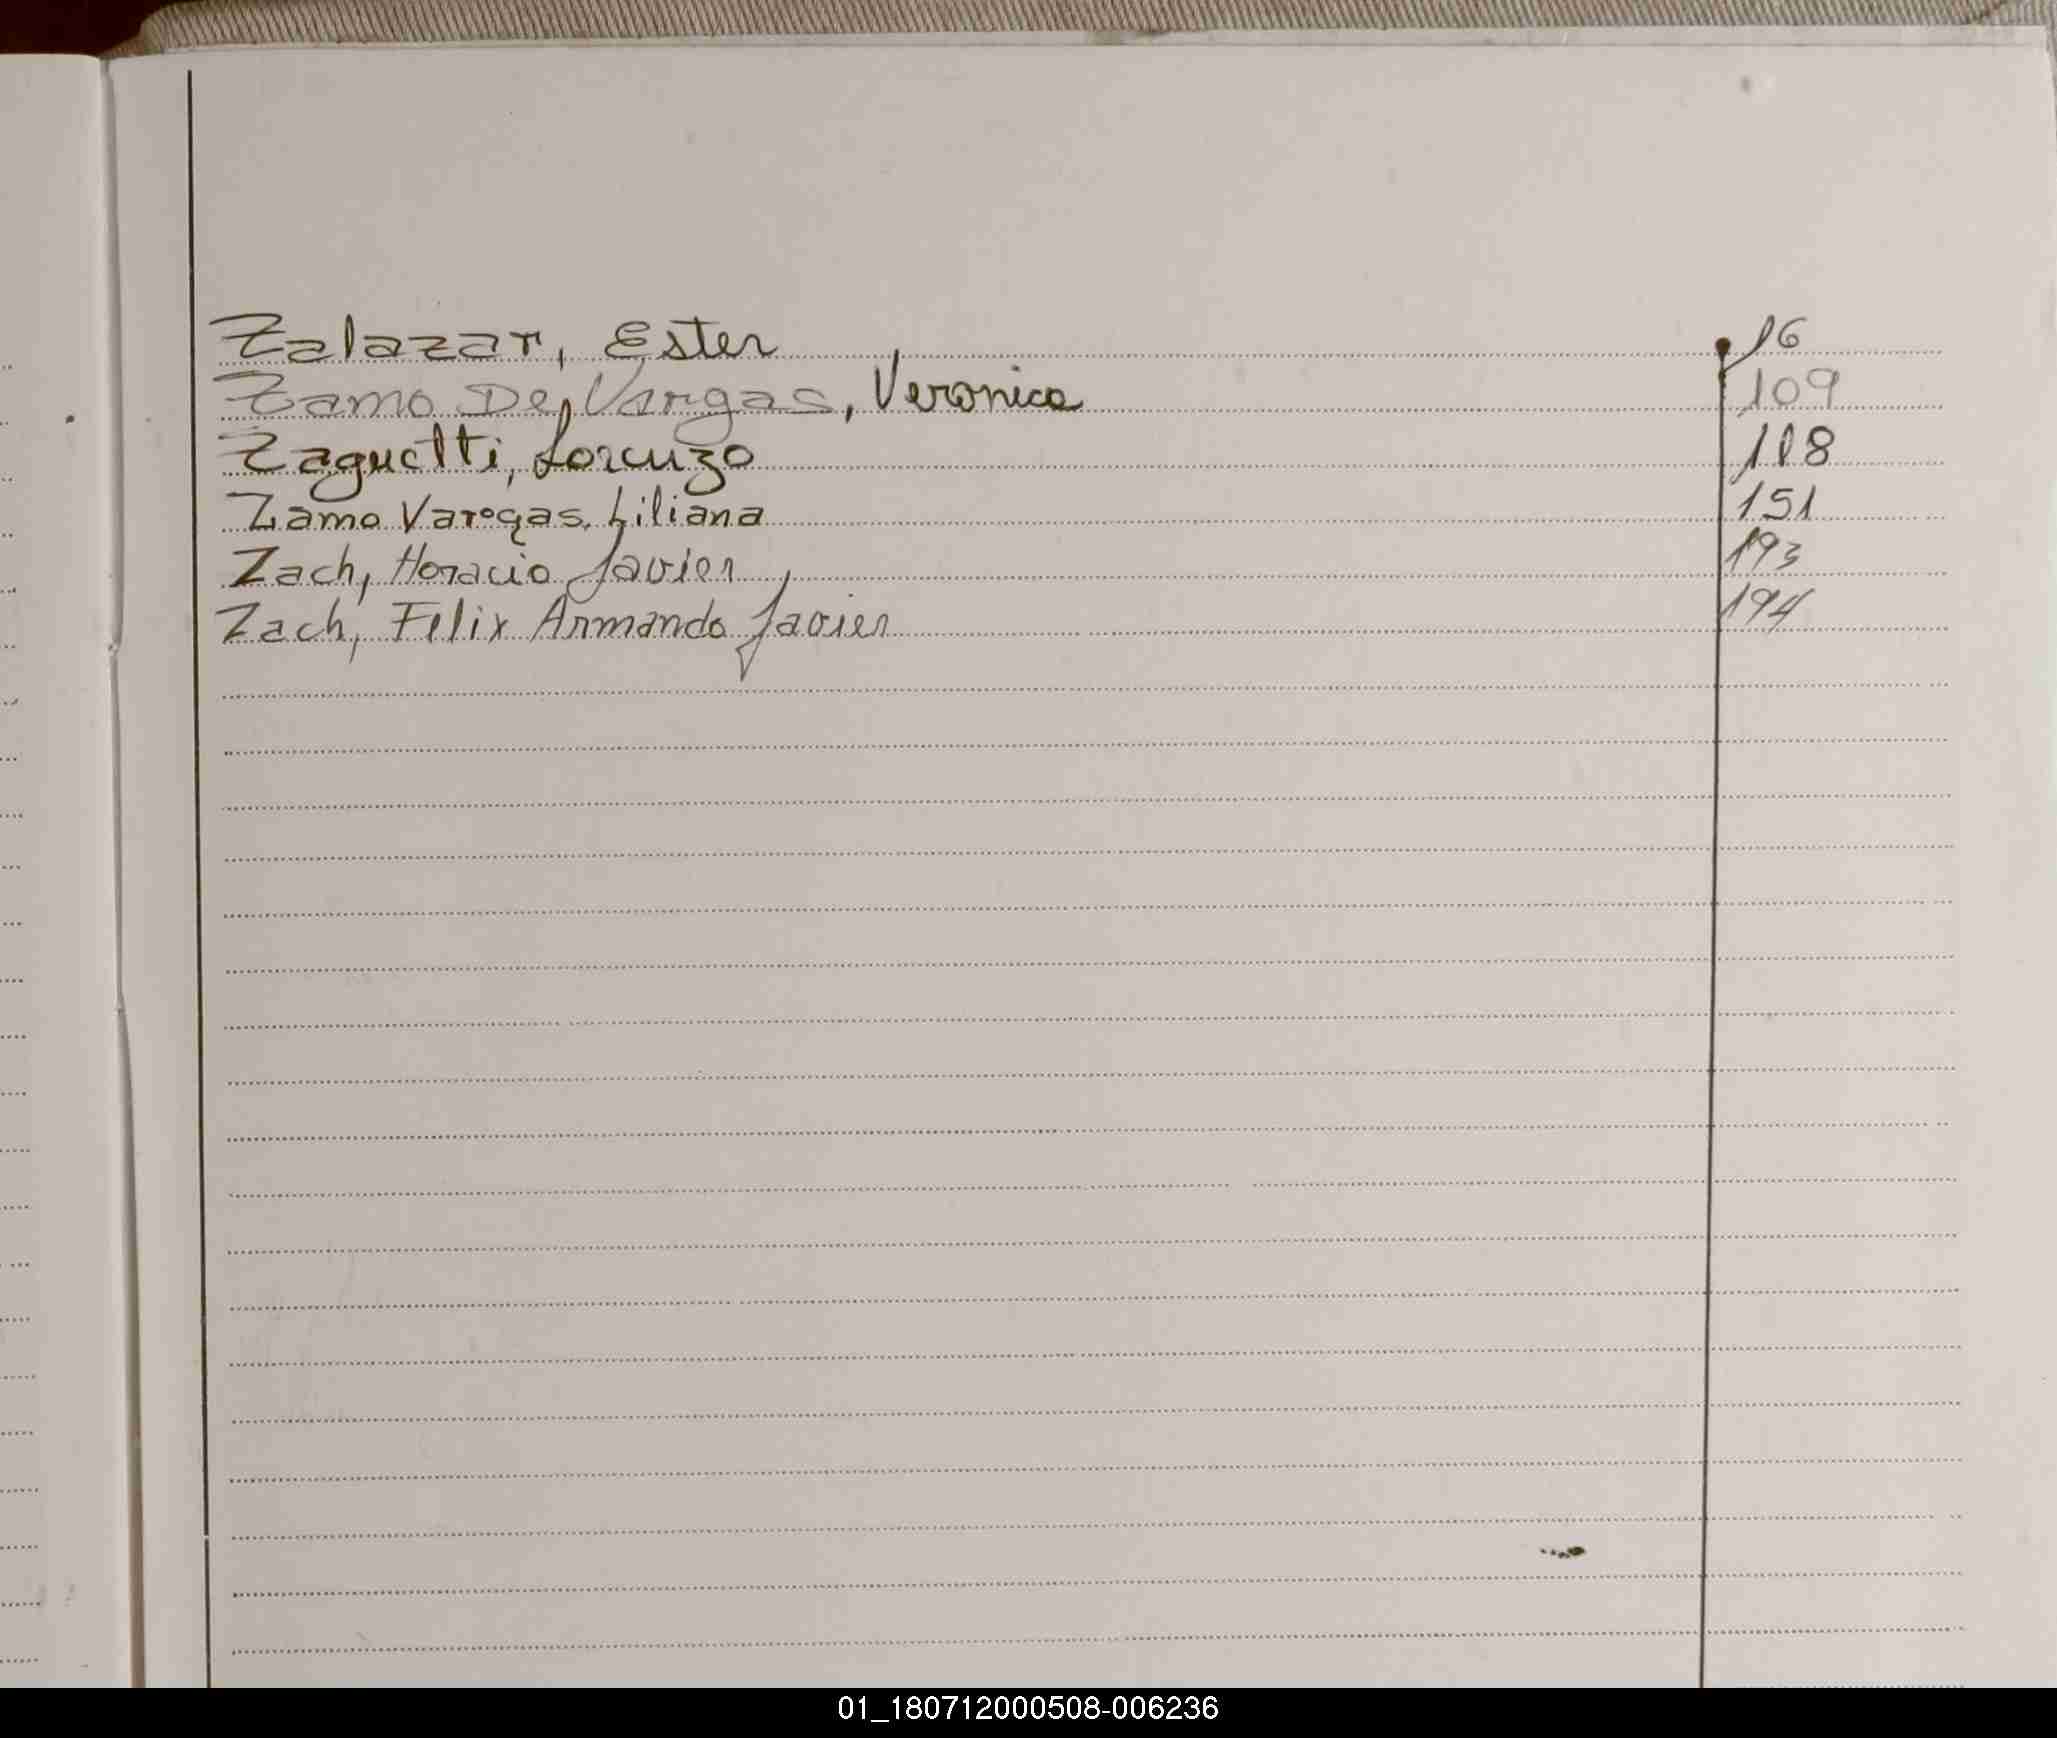 Zalazar, Ester 16
Zamo De Vargas, Veronica 109
Zaguetti, Lorenzo 118
Zamo Varegas, Liliana 151
Zach, Horacio Javier 193
Zach, Felix Armando Javier 194
01_180712000508-006236